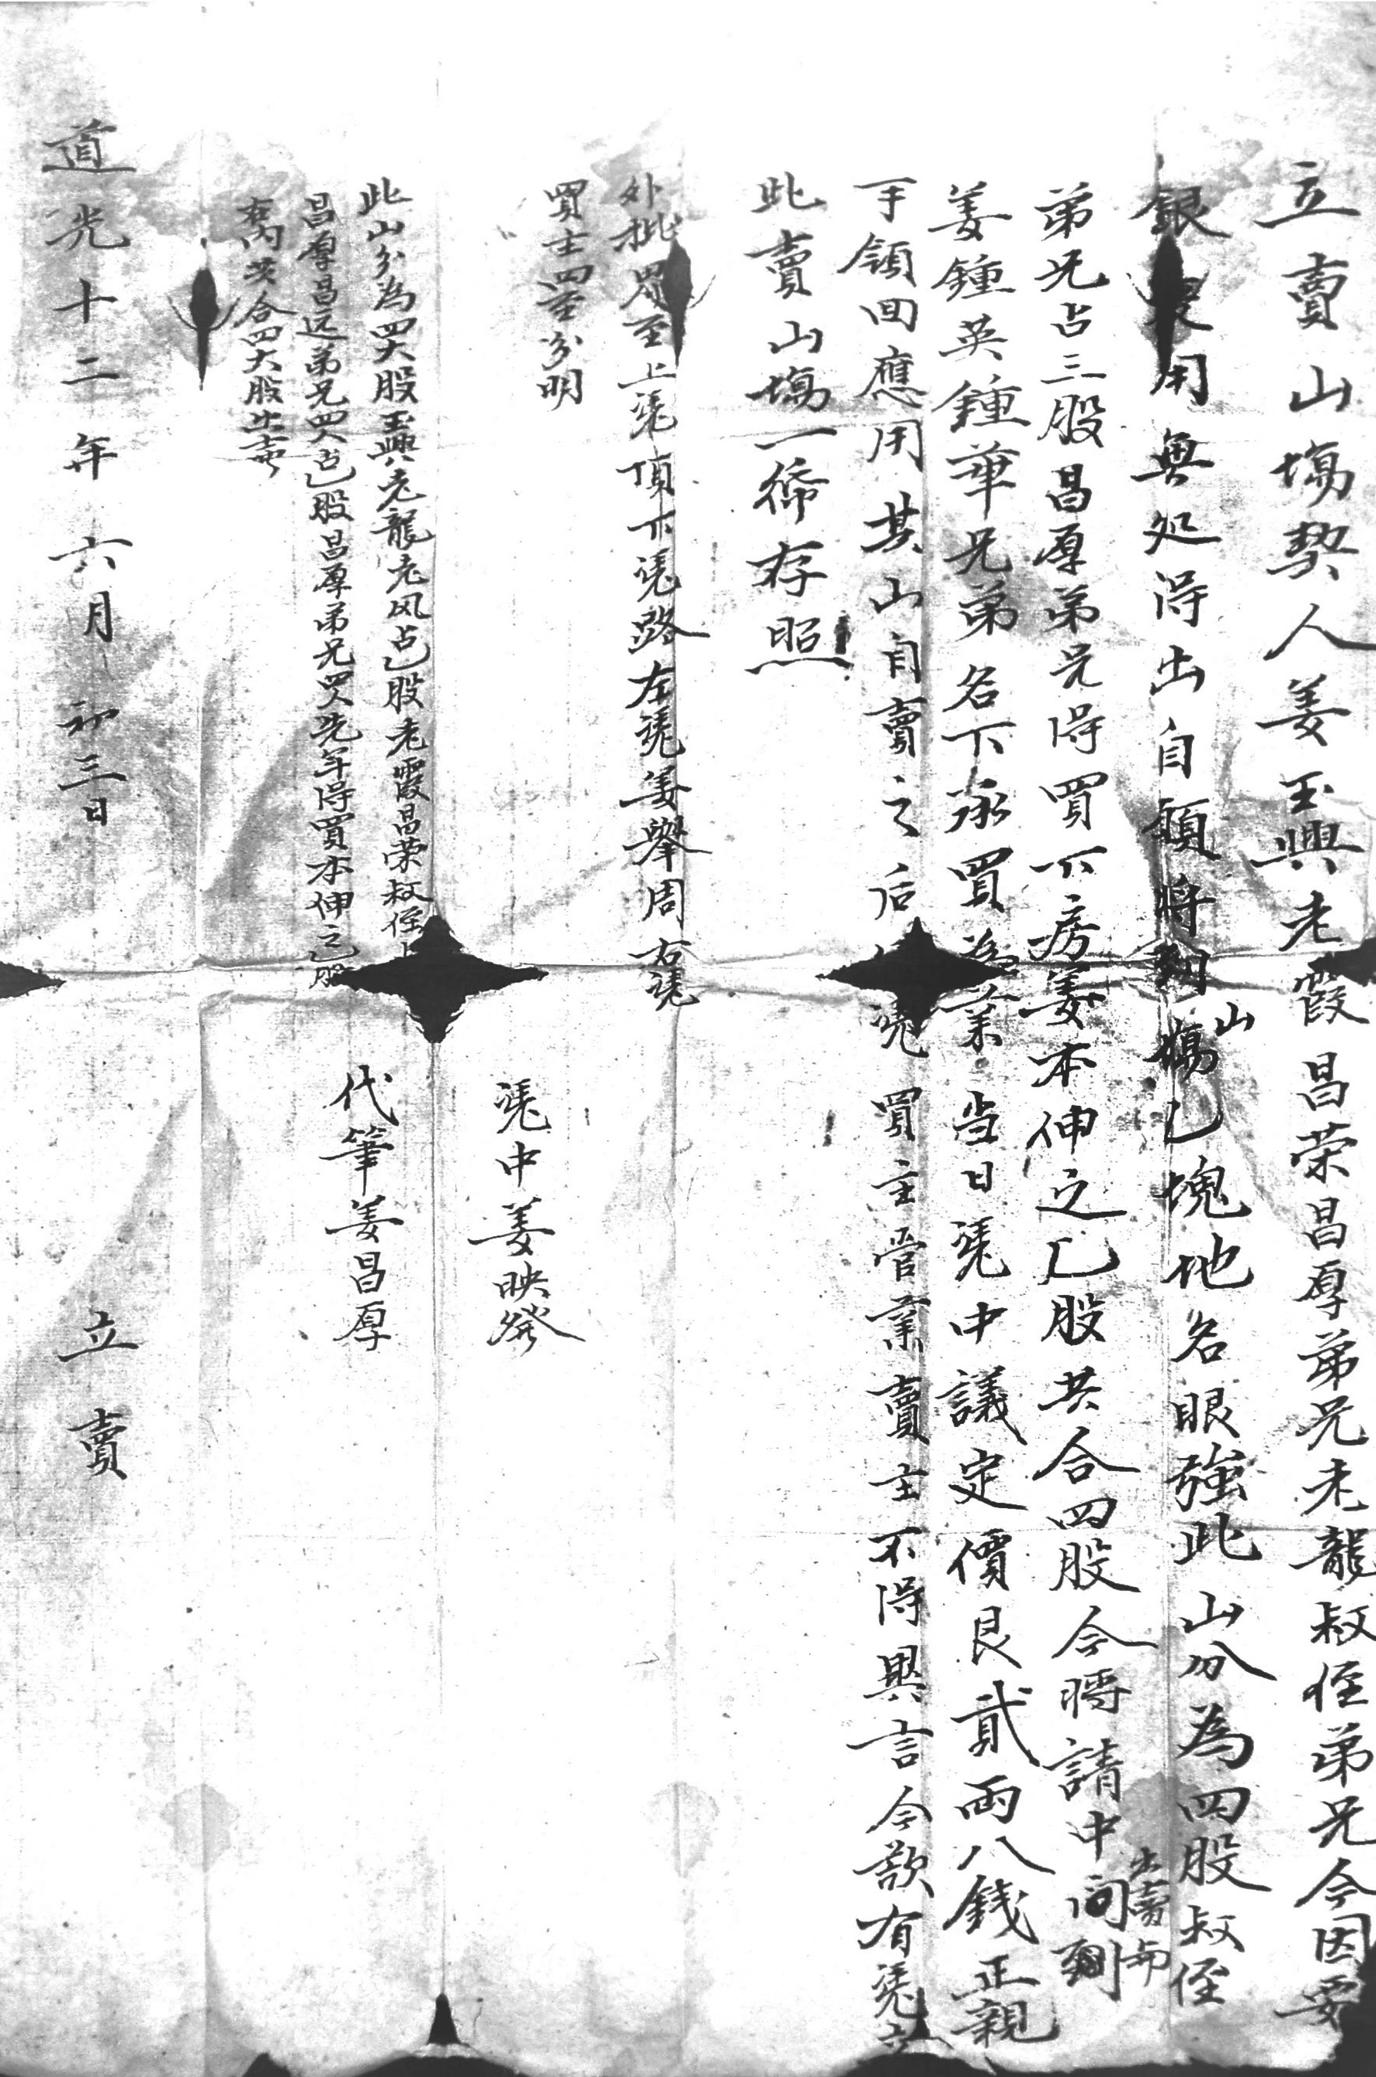 立賣山塲契人姜玉興老霞昌荣昌厚弟兄老龍叔侄弟兄今因要
銀使用無処得出自願將到山塲乙塊地名眼強此山分為四股叔侄
弟兄占三股昌厚弟兄得買下房姜本伸之乙股共合四股今將請中問到出賣与
姜鍾英鍾華兄弟名下承買為業當日凴中議定價艮貳兩八錢正親
手領回應用其山自賣之后凴買主管業賣主不得異言今欲有凴立
此賣山塲一帋存照
外批界至上凴頂下凴路左凴姜舉周右凴
買主四至分明
此山分為四大股玉興老龍老风占乙股老霞昌荣叔侄占
昌厚昌远弟兄四人占乙股昌厚弟兄四人先年得買本伸之乙股
在内共合四大股出賣
凴中姜映發
代筆姜昌厚
道光十二年六月初三日 立賣